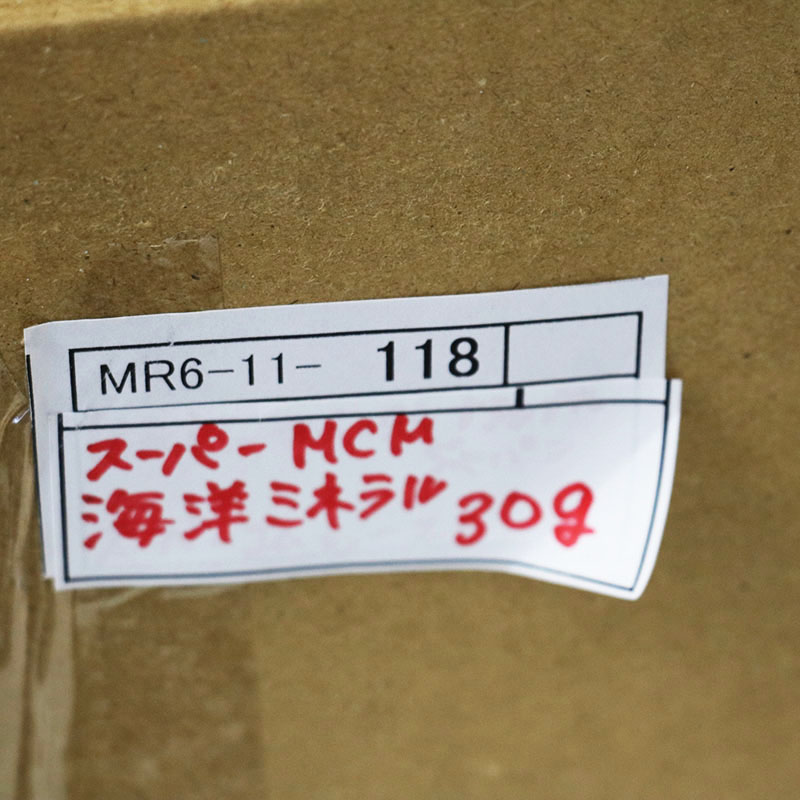 MR6-11- 118
スーパーMCM
海洋ミネラル 30g